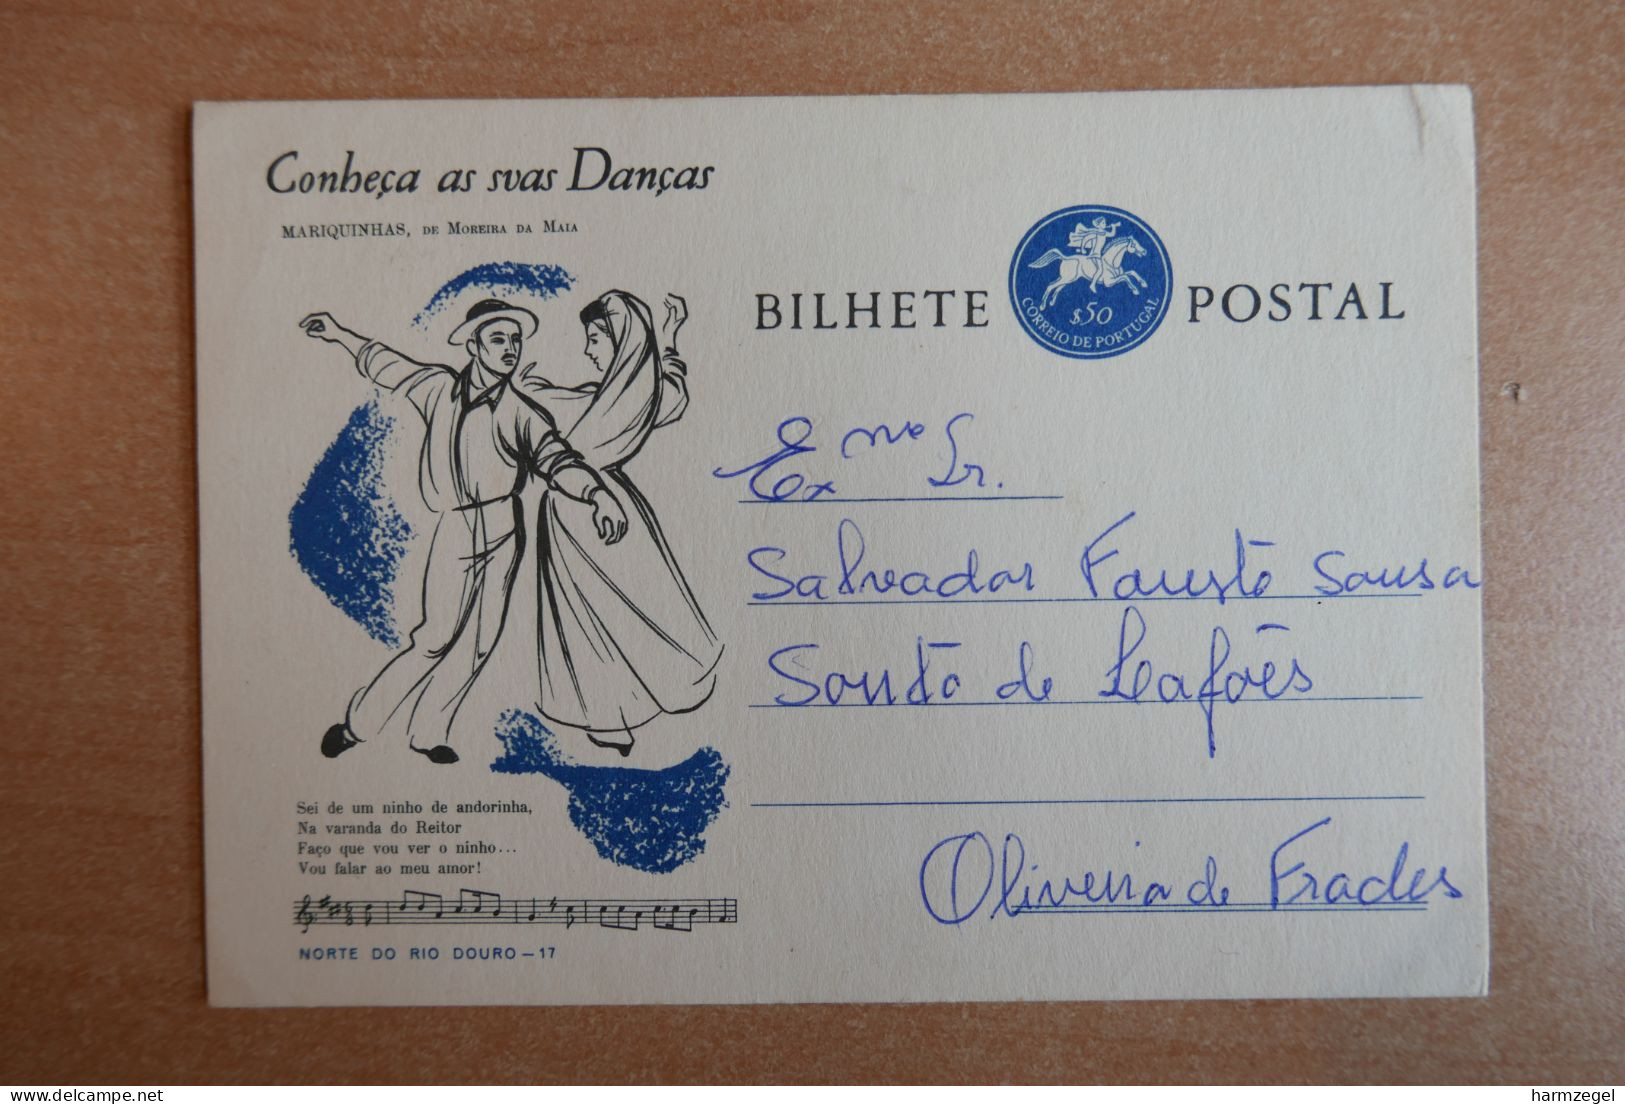 Conheça as suas Danças
MARIQUINHAS, DE MOREIRA DA MAIA
BILHETE POSTAL
$50
CORREIO DE PORTUGAL
Exmo Sr.
Salvador Fausto Sousa
Souto de Lafões
Oliveira de Frades
Sei de um ninho de andorinha,
Na varanda do Reitor
Faço que vou ver o ninho...
Vou falar ao meu amor!
NORTE DO RIO DOURO — 17
delcampe.net
harmzegel